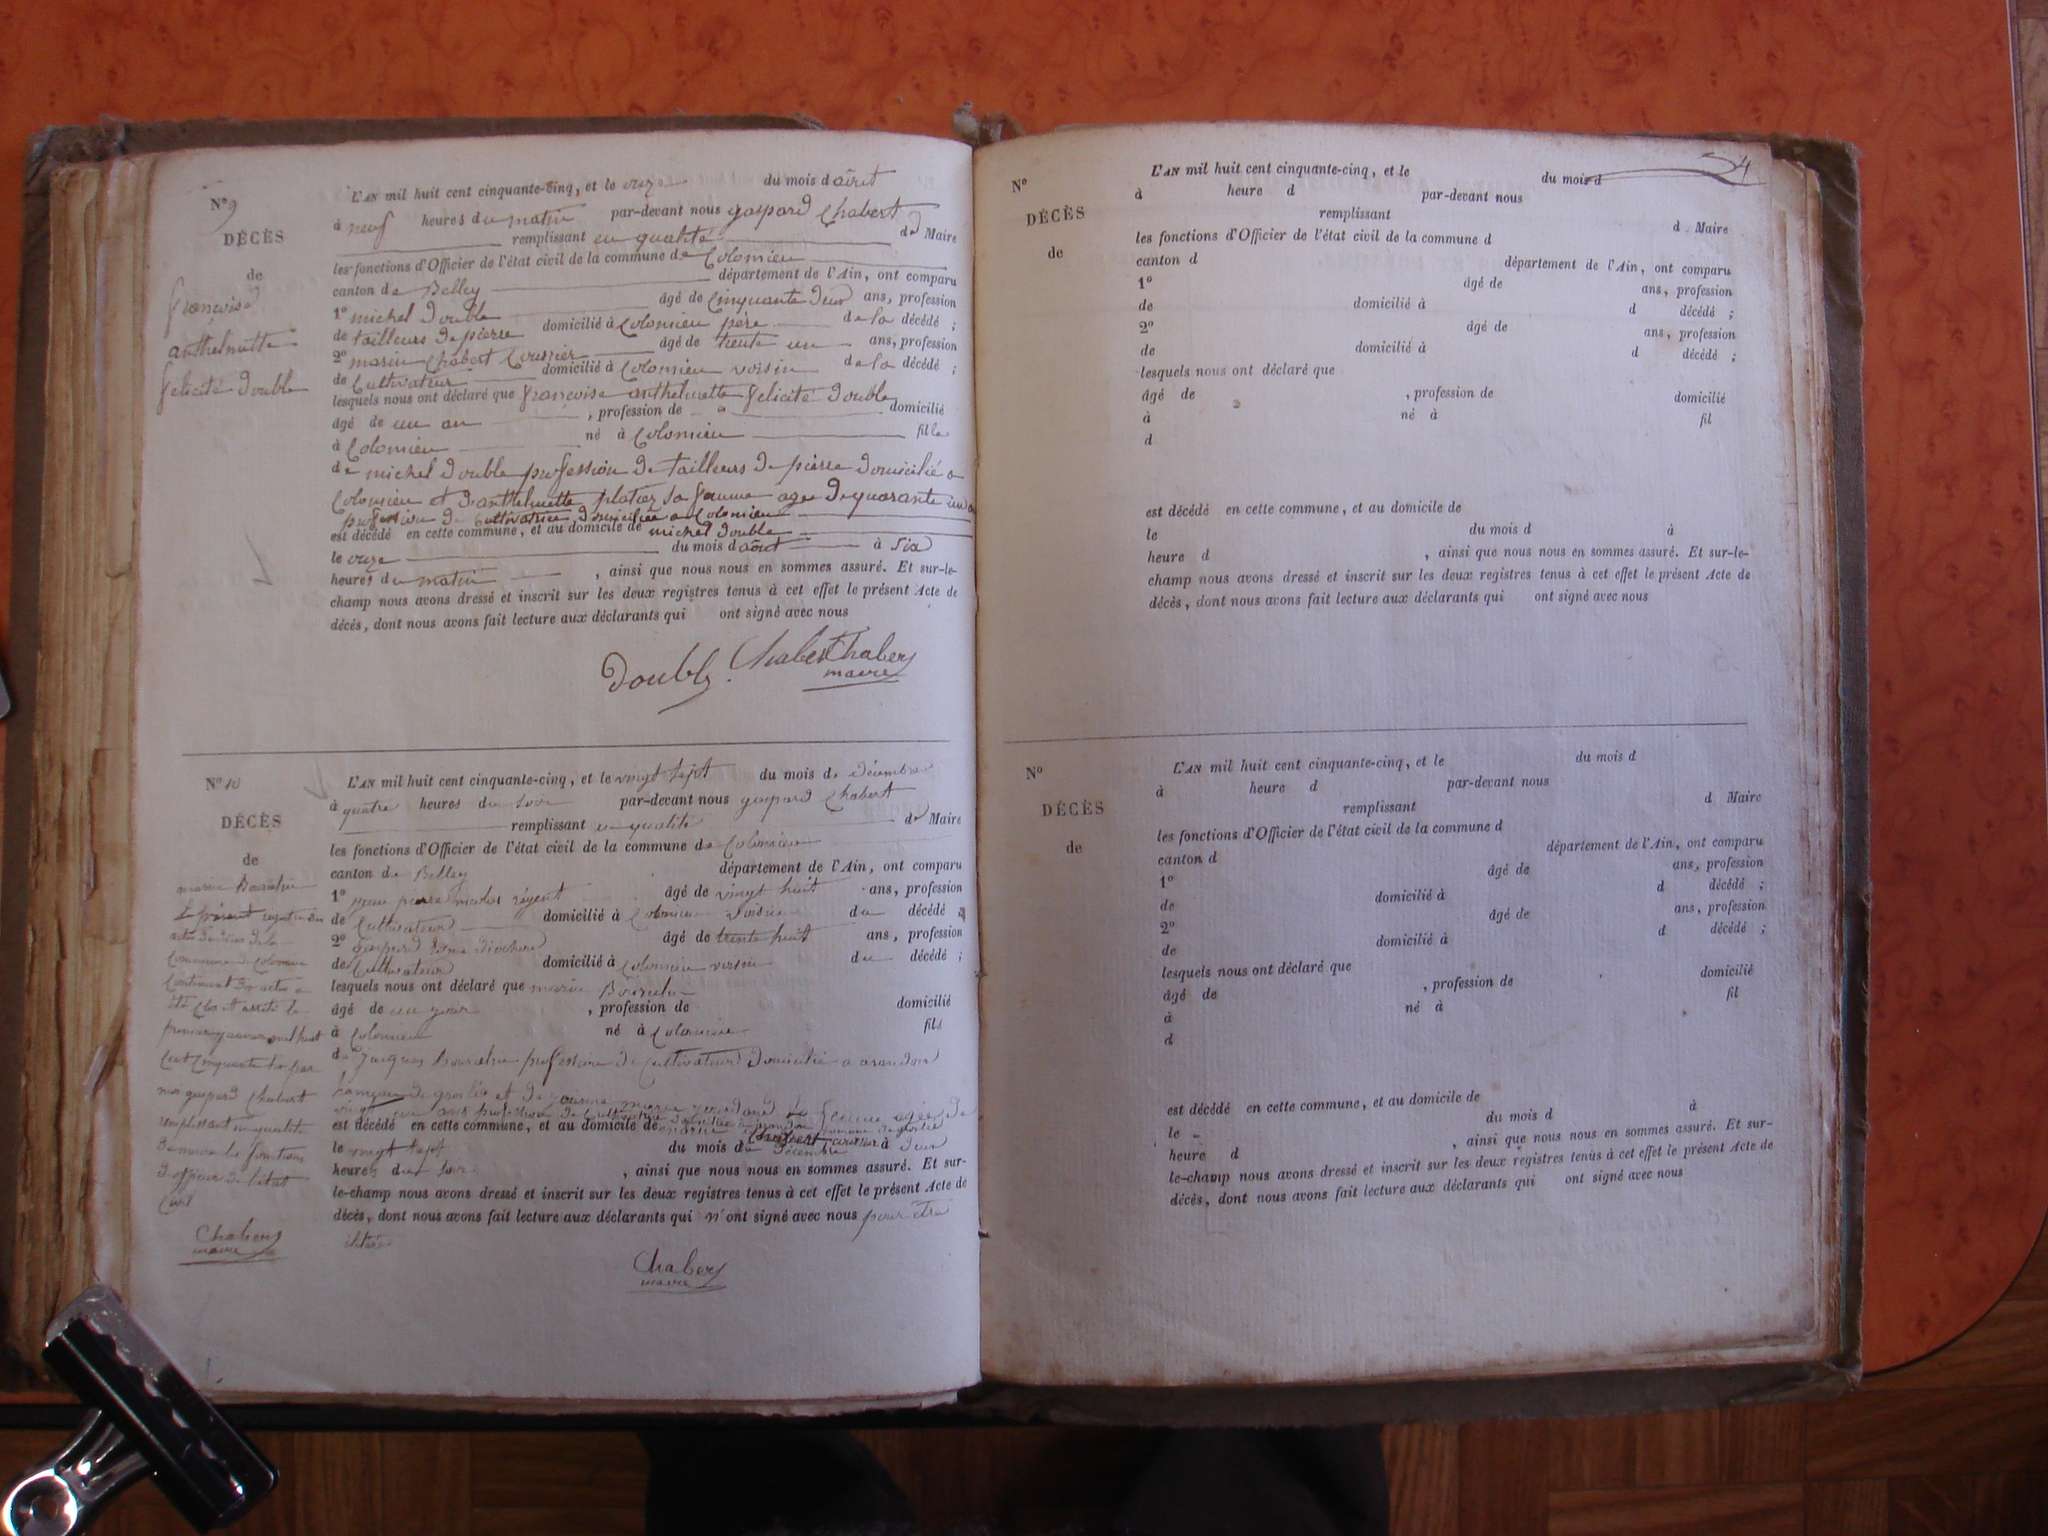 N° 9
DÉCÈS
de
françoise
anthelmette
félicité Double
L'AN mil huit cent cinquante-cinq, et le onze du mois d août
à neuf heures du matin par-devant nous gaspard Chabert
remplissant en qualité de Maire
les fonctions d'Officier de l'état civil de la commune de Colomieu
canton de Belley département de l'Ain, ont comparu
1° michel Double âgé de Cinquante deux ans, profession
de tailleurs de pierre domicilié à Colomieu père de la décédé ;
2° marin Chabert âgé de trente un ans, profession
de Cultivateur domicilié à Colomieu voisin de la décédé ;
lesquels nous ont déclaré que françoise anthelmette félicité Double
âgé de un an , profession de domicilié
à Colomieu né à Colomieu fille
de michel Double profession de tailleurs de pierre domicilié a
Colomieu et d'anthelmette platier sa femme agee de quarante
profession de cultivatrice domiciliée a Colomieu
est décédé en cette commune, et au domicile de michel Double
le onze du mois d août à six
heures du matin , ainsi que nous nous en sommes assuré. Et sur-le-
champ nous avons dressé et inscrit sur les deux registres tenus à cet effet le présent Acte de
décès, dont nous avons fait lecture aux déclarants qui ont signé avec nous
Double Chabert Chabert
maire
N° 10
DÉCÈS
de
marin
Le présent registre des
actes de décès de la
Commune de Colomieu
Contenant actes a
été Clos et arrêté le
premier janvier mil huit
Cent Cinquante six par
nous gaspard Chabert
remplissant en qualité
de maire les fonctions
d'officier de l'état
Civil
Chabert
maire
L'AN mil huit cent cinquante-cinq, et le vingt sept du mois de décembre
à quatre heures du soir par-devant nous gaspard Chabert
remplissant en qualité de Maire
les fonctions d'Officier de l'état civil de la commune de Colomieu
canton de Belley département de l'Ain, ont comparu
1° pierre nicolas âgé de vingt huit ans, profession
de Cultivateur domicilié à Colomieu voisin du décédé
2° gaspard âgé de trente huit ans, profession
de Cultivateur domicilié à Colomieu voisin du décédé ;
lesquels nous ont déclaré que marin
âgé de un jour , profession de domicilié
à Colomieu né à Colomieu fils
de jacques profession de Cultivateur domicilié a arandon
hameau de groslée et de marie sa femme agée de
vingt ans profession de Cultivatrice
est décédé en cette commune, et au domicile de Chabert
le vingt sept du mois de décembre à deux
heures du soir , ainsi que nous nous en sommes assuré. Et sur-
le-champ nous avons dressé et inscrit sur les deux registres tenus à cet effet le présent Acte de
décès, dont nous avons fait lecture aux déclarants qui n'ont signé avec nous pour être
Chabert
maire
54
N°
DÉCÈS
de
L'AN mil huit cent cinquante-cinq, et le du mois d
à heure d par-devant nous
remplissant d Maire
les fonctions d'Officier de l'état civil de la commune d
canton d département de l'Ain, ont comparu
1° âgé de ans, profession
de domicilié à d décédé ;
2° âgé de ans, profession
de domicilié à d décédé ;
lesquels nous ont déclaré que
âgé de , profession de domicilié
à né à fil
d
est décédé en cette commune, et au domicile de
le du mois d à
heure d , ainsi que nous nous en sommes assuré. Et sur-le-
champ nous avons dressé et inscrit sur les deux registres tenus à cet effet le présent Acte de
décès, dont nous avons fait lecture aux déclarants qui ont signé avec nous
N°
DÉCÈS
de
L'AN mil huit cent cinquante-cinq, et le du mois d
à heure d par-devant nous
remplissant d Maire
les fonctions d'Officier de l'état civil de la commune d
canton d département de l'Ain, ont comparu
1° âgé de ans, profession
de domicilié à d décédé ;
2° âgé de ans, profession
de domicilié à d décédé ;
lesquels nous ont déclaré que
âgé de , profession de domicilié
à né à fil
d
est décédé en cette commune, et au domicile de
le du mois d à
heure d , ainsi que nous nous en sommes assuré. Et sur-
le-champ nous avons dressé et inscrit sur les deux registres tenus à cet effet le présent Acte de
décès, dont nous avons fait lecture aux déclarants qui ont signé avec nous